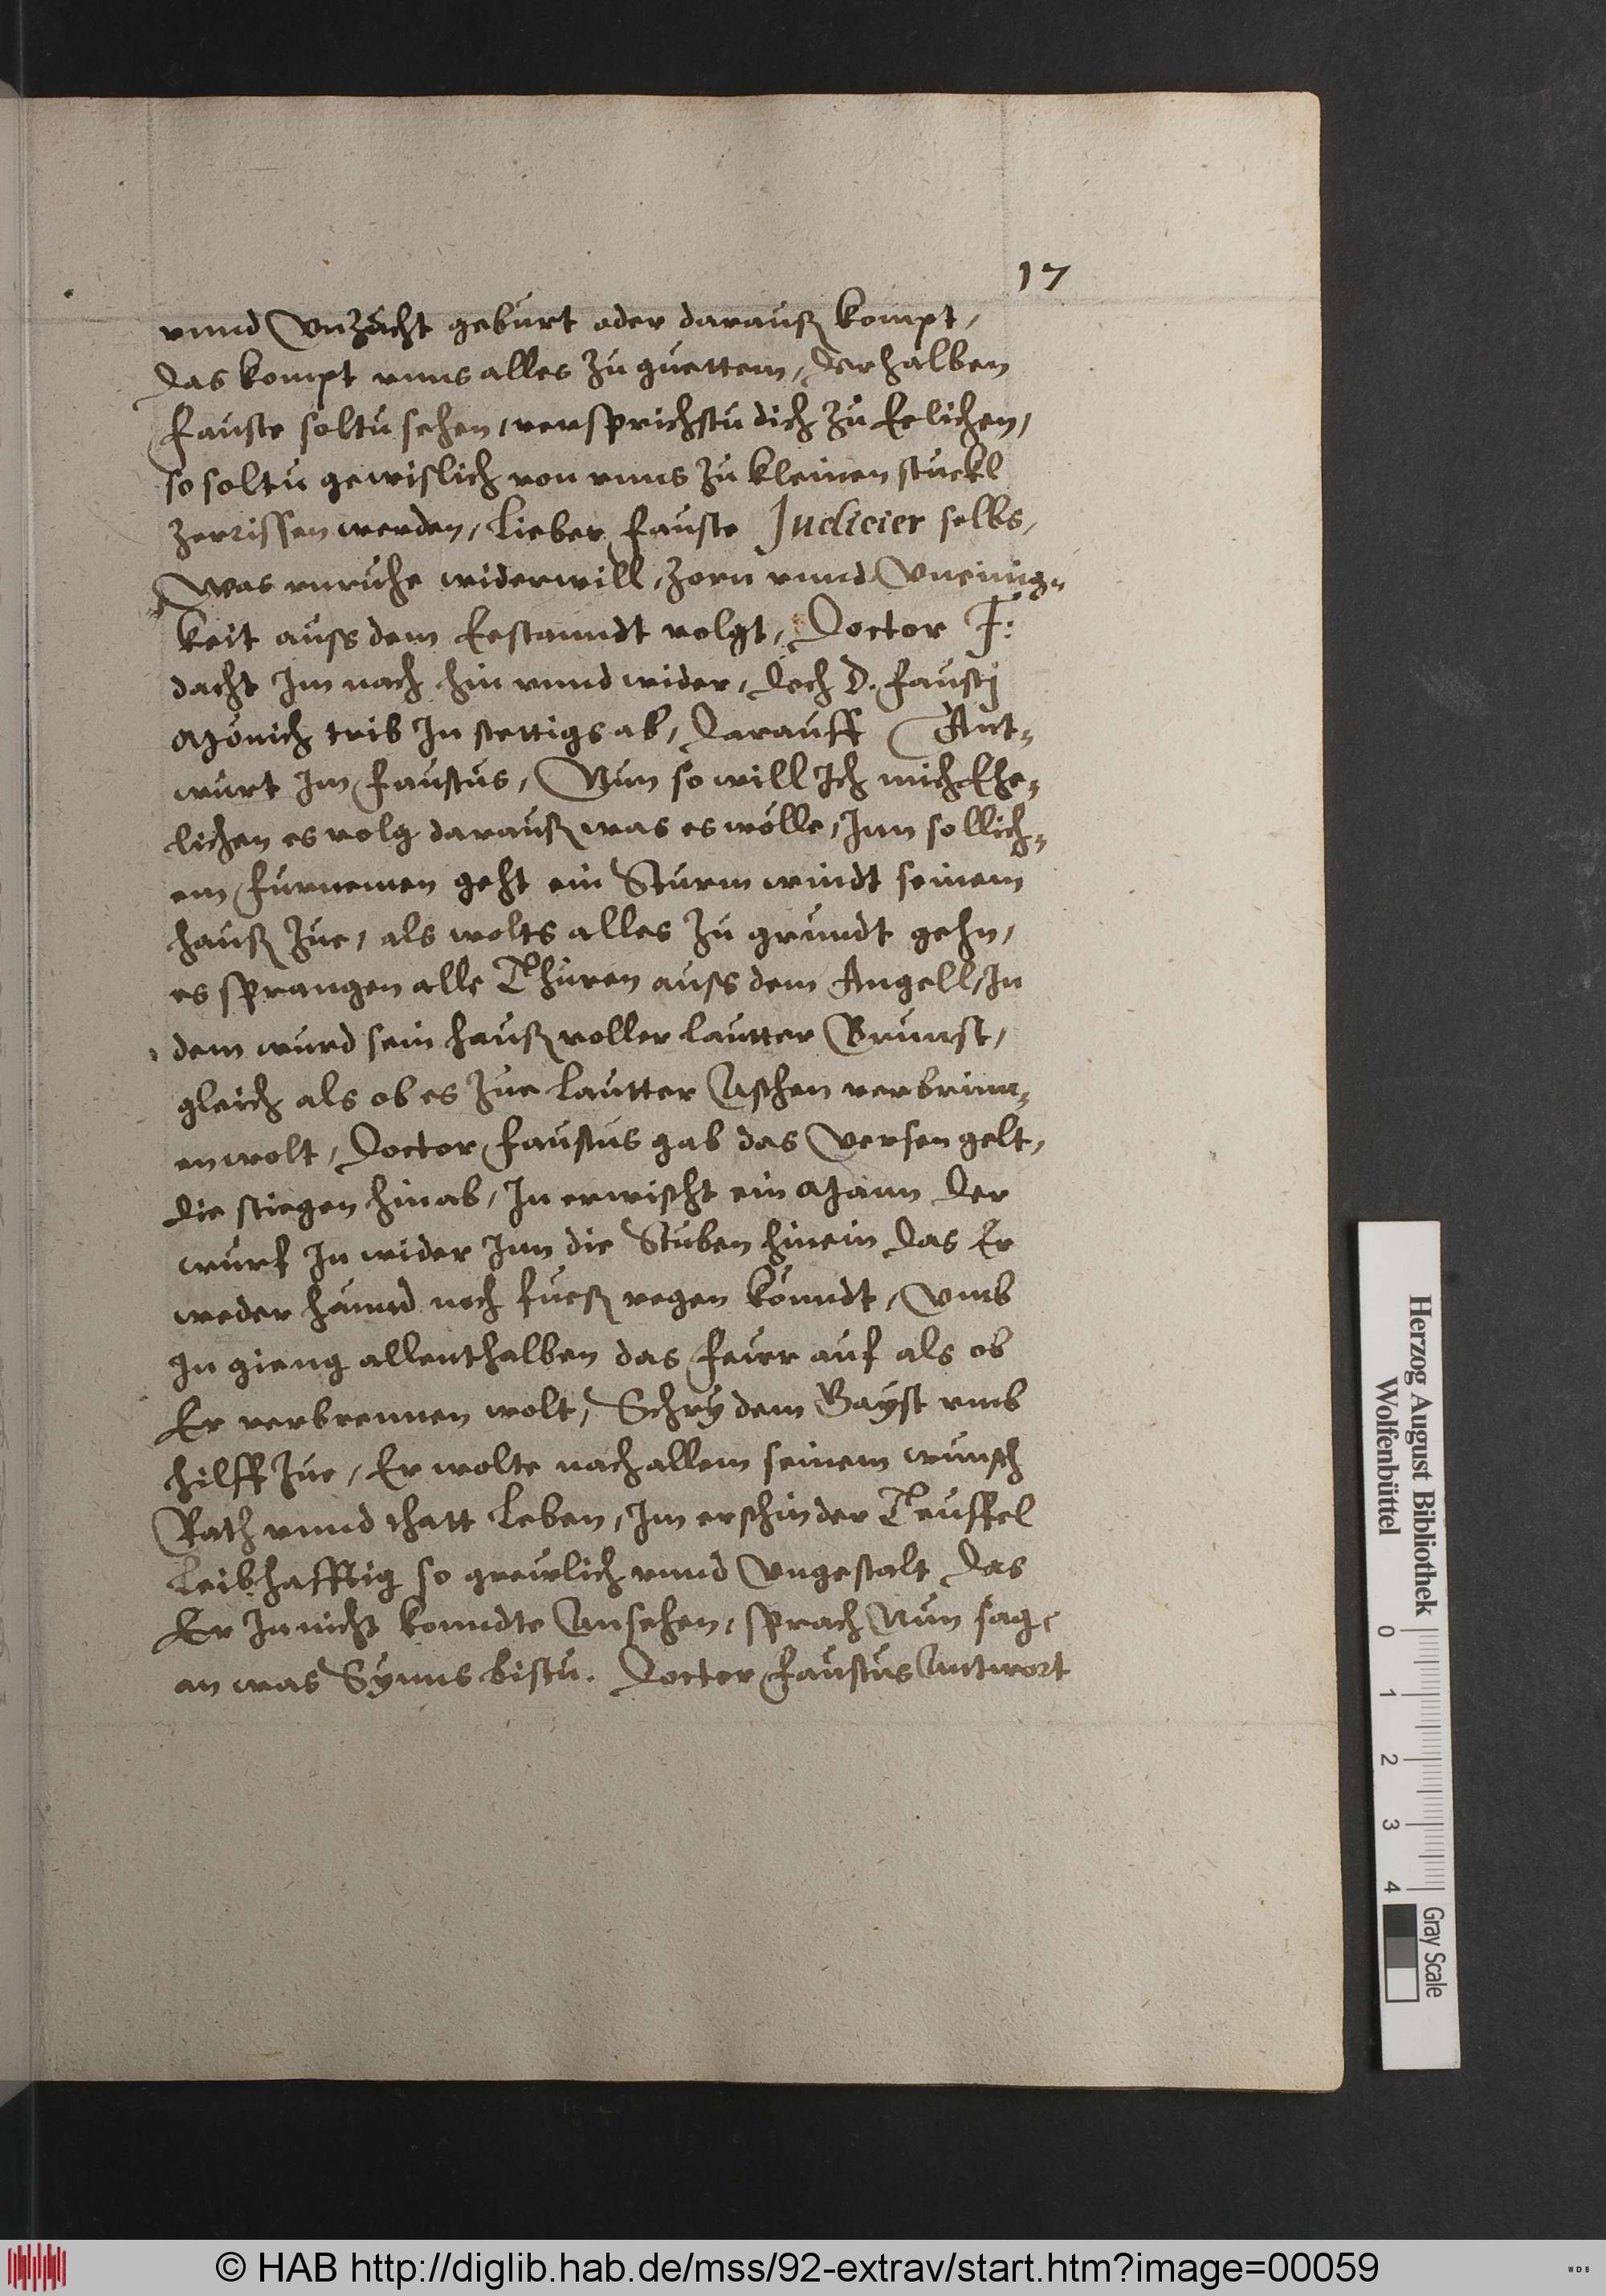 17
vnnd Vnzùcht gebùrt oder daraùß kompt,
das kompt vnns alles zù gùettem, derhalben
Fauste soltù sehen, versprichstù dich zù Eelichen,
so soltù gewislich von vnns zù kleinen stuckl
zerrissen werden, Lieber Fauste Judicier selbs,
Was vnruhe widerwill, zorn vnnd Vneinig=
keit auss dem Eestanndt volgt, Doctor F:
dacht Im nach hin vnnd wider, doch D. Faustj
Mönich trib In stettigs ab, daraùff Ant=
wùrt Im Faustus, Nùn so will Ich mich Ehe=
lichen es volg daraùß was es wölle, Inn sollich=
em Fùrnemen geht ein Stùrmwindt seinem
haùß zùe, als wolts alles zù grùndt gehn,
es sprangen alle Thùren auss dem Angell, In
dem wùrd sein haùß voller laùtter Brùnst,
gleich als ob es zùe laùtter Aschen verbrinn=
en wolt, Doctor Faustus gab das Versengelt,
die stiegen hinab, In erwischt ein Mann der
wùrf In wider Inn die Stùben hinein das Er
weder hännd noch fùeß regen könndt, Vmb
In gieng allenthalben das Feùer aùf als ob
Er verbrennen wolt, Schry dem Gayst vmb
hilff zùe, Er wolte nach allem seinem wùnsch
Rath vnnd thatt Leben, Im erschin der Teùffel
Leibhafftig so greùlich vnnd Vngestalt das
Er In nicht konndte Ansehen, sprach Nùn sag
an was Synns bistù. Doctor Faùstùs Antwort
Herzog August Bibliothek
Wolfenbüttel
0 1 2 3 4
Gray Scale
© HAB http://diglib.hab.de/mss/92-extrav/start.htm?image=00059
WDB